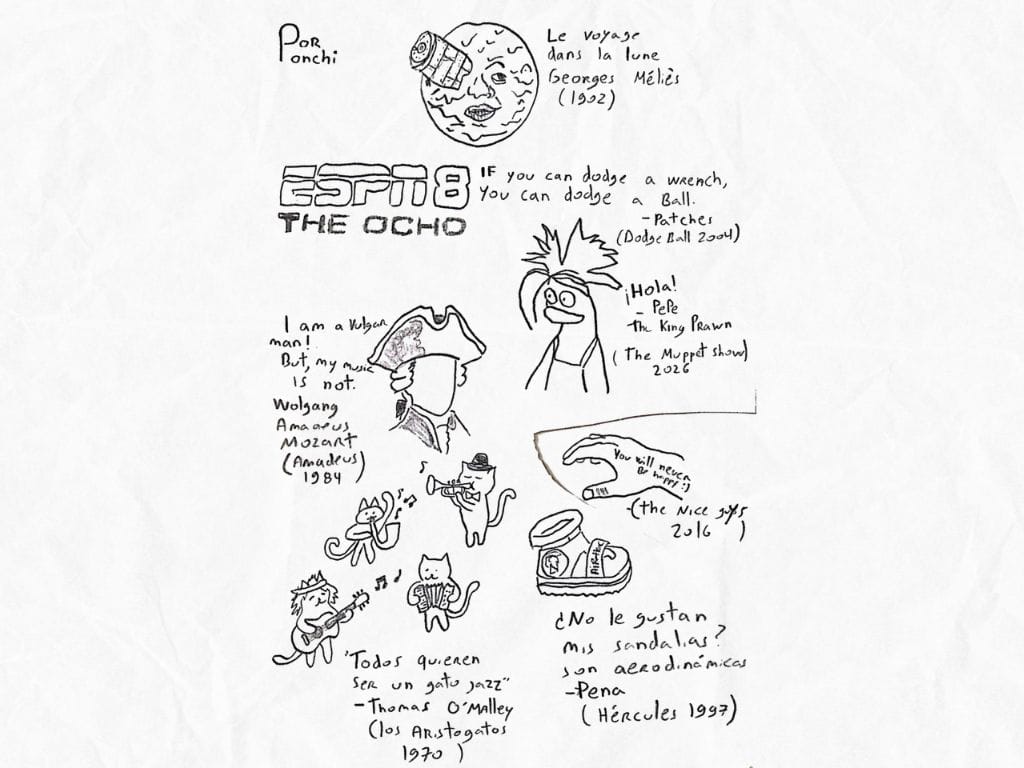 Por
Ponchi
Le voyage
dans la lune
Georges Méliès
(1902)
ESPN 8
THE OCHO
IF you can dodge a wrench,
You can dodge a Ball.
-Patches
(Dodge Ball 2004)
¡Hola!
- Pepe
The King Prawn
(The Muppet show)
2026
I am a Vulgar
man!
But, my music
is not.
Wolgang
Amadeus
Mozart
(Amadeus)
1984
You will never
Be happy :)
-(the Nice guys
2016 )
AiR-Hk
¿No le gustan
mis sandalias?
son aerodinámicas
-Pena
(Hércules 1997)
"Todos quieren
ser un gato jazz"
-Thomas O'Malley
(los Aristogatos
1970 )